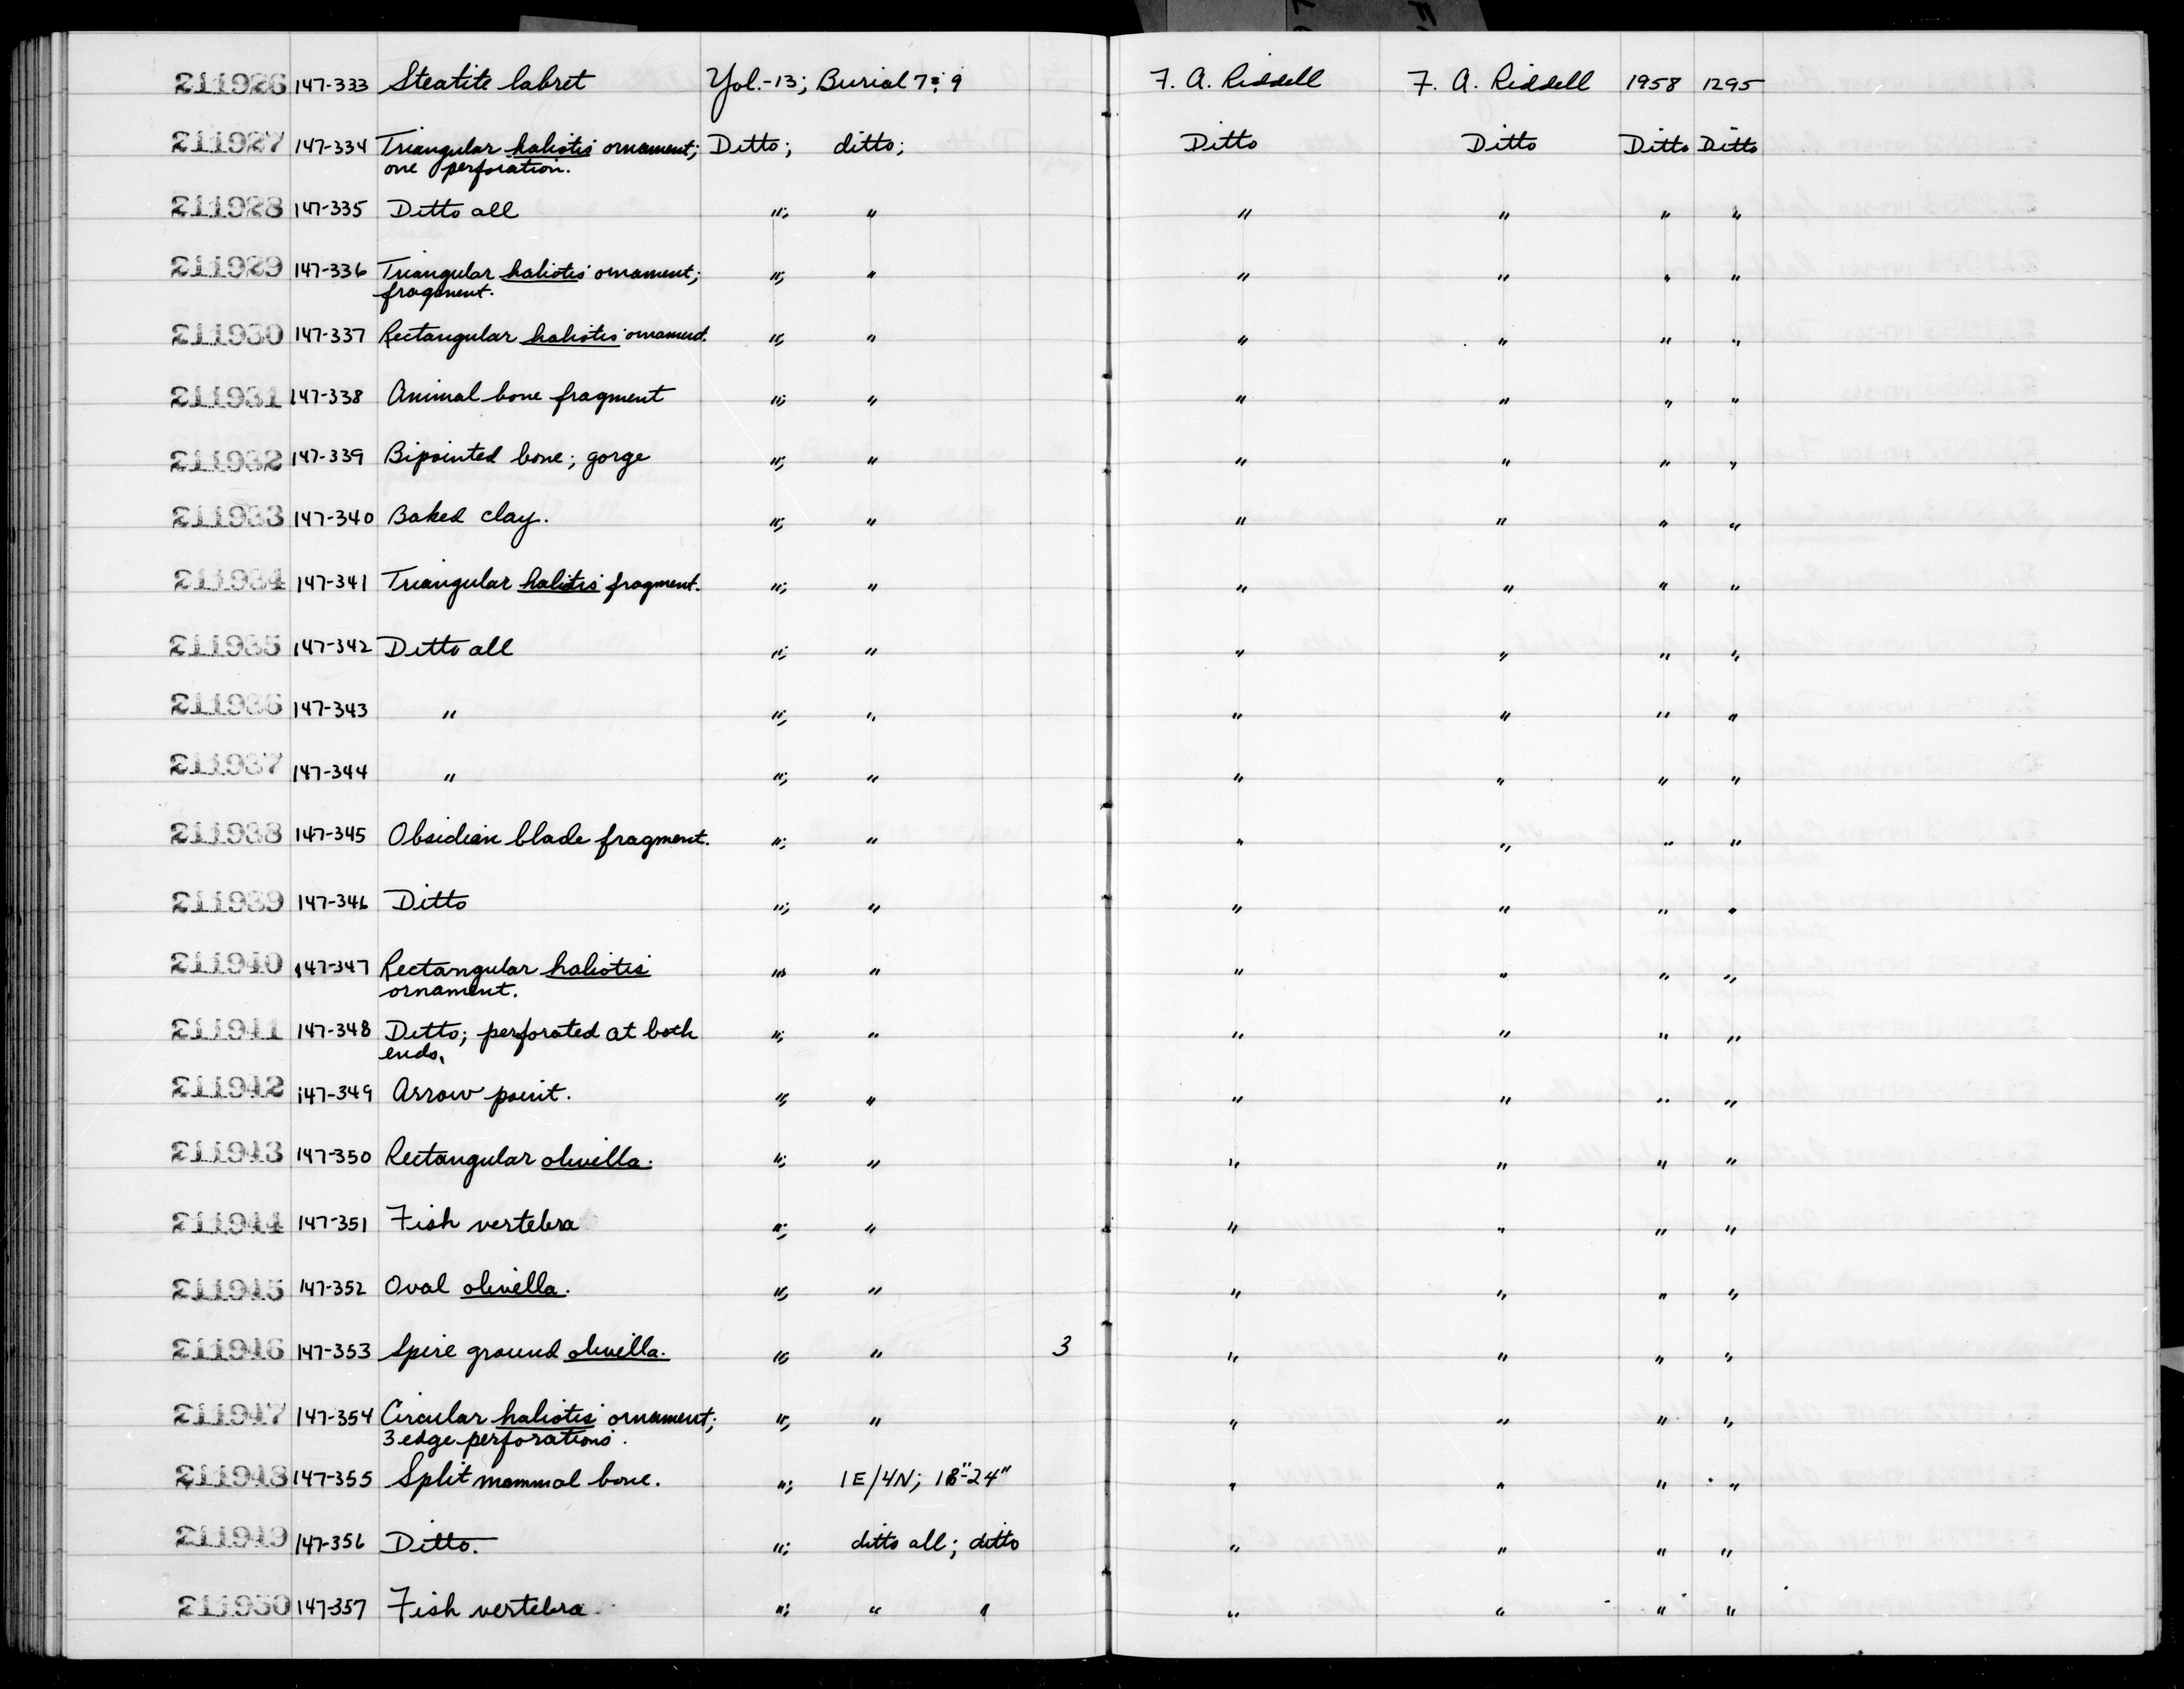 211926 147-333 Steatite labret Yol.-13; Burial 7; 9 F. A. Riddell F. A. Riddell 1958 1295
211927 147-334 Triangular haliotis ornament; Ditto; ditto; Ditto Ditto Ditto Ditto
one perforation.
211928 147-335 Ditto all "; " " " " "
211929 147-336 Triangular haliotis ornament; "; " " " " "
fragment.
211930 147-337 Rectangular haliotis ornament. "; " " " " "
211931 147-338 Animal bone fragment "; " " " " "
211932 147-339 Bipointed bone; gorge "; " " " " "
211933 147-340 Baked clay. "; " " " " "
211934 147-341 Triangular haliotis fragment. "; " " " " "
211935 147-342 Ditto all "; " " " " "
211936 147-343 " "; " " " " "
211937 147-344 " "; " " " " "
211938 147-345 Obsidian blade fragment. "; " " " " "
211939 147-346 Ditto "; " " " " "
211940 147-347 Rectangular haliotis "; " " " " "
ornament.
211941 147-348 Ditto; perforated at both "; " " " " "
ends.
211942 147-349 Arrow point. "; " " " " "
211943 147-350 Rectangular olivella. "; " " " " "
211944 147-351 Fish vertebra "; " " " " "
211945 147-352 Oval olivella. "; " " " " "
211946 147-353 Spire ground olivella. "; " 3 " " " "
211947 147-354 Circular haliotis ornament; "; " " " " "
3 edge perforations.
211948 147-355 Split mammal bone. "; 1E/4N; 18"-24" " " " "
211949 147-356 Ditto. "; ditto all; ditto " " " "
211950 147-357 Fish vertebra "; " " " " " "